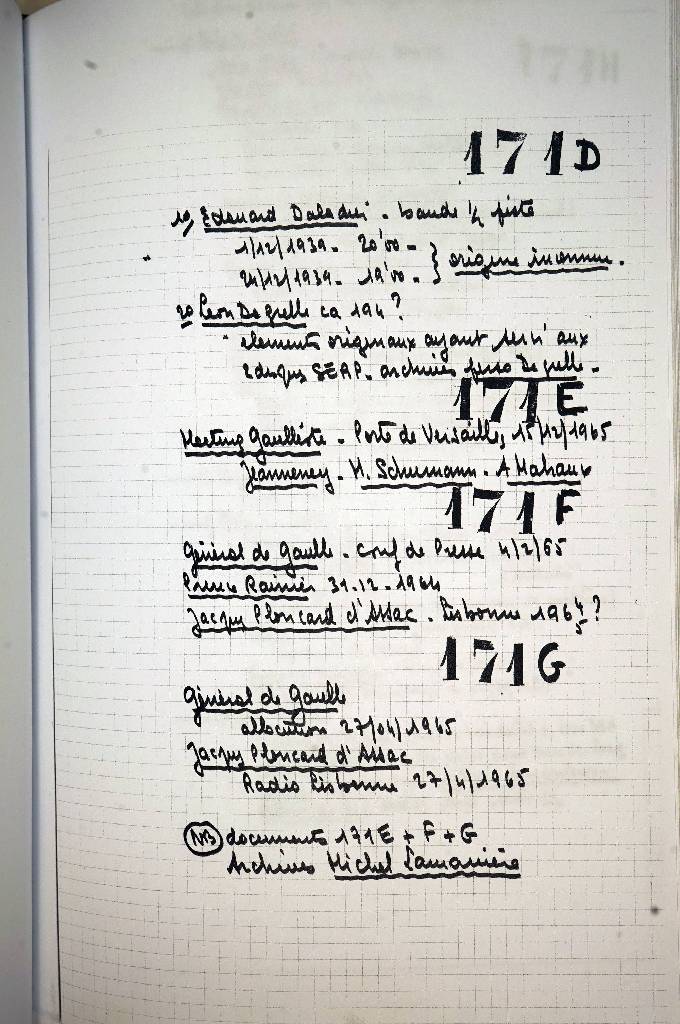 171D
1o/ Edouard Daladier - bande ½ piste
1/12/1939 - 20'00 -
24/12/1939 - 19'00 - } origine inconnue.
2o Leon Degrelle ca 194?
elements originaux ayant servi aux
2 disques SERP - archives perso Degrelle -
171E
Meeting Gaulliste - Porte de Versailles, 15/12/1965
Jeanneney - M. Schumann - A Malraux
171F
Général de Gaulle - conf de Presse 4/2/65
Prince Rainier 31-12-1964
Jacques Ploncard d'Assac - Lisbonne 1964/5 ?
171G
Général de Gaulle
allocution 27/04/1965
Jacques Ploncard d'Assac
Radio Lisbonne 27/4/1965
NB documents 171E + F + G
Archives Michel